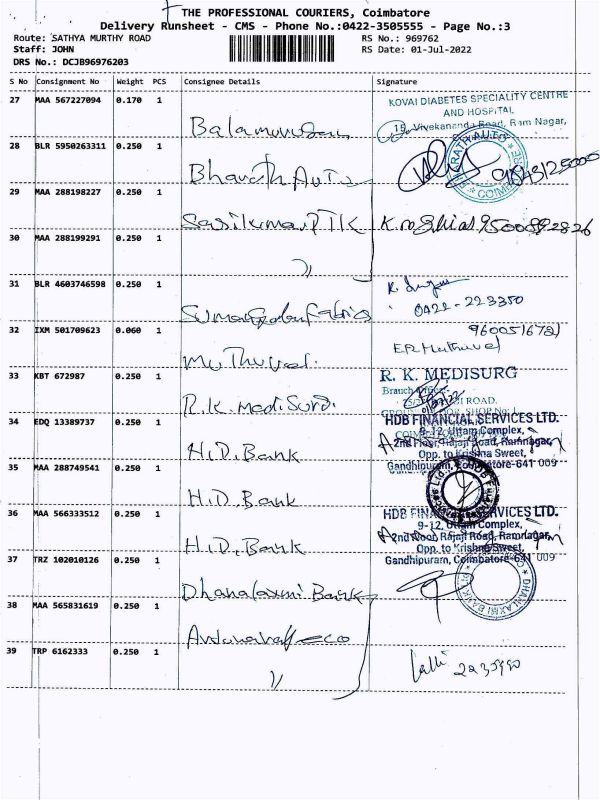 THE PROFESSIONAL COURIERS, Coimbatore
Delivery Runsheet - CMS - Phone No.:0422-3505555 - Page No.:3
Route: SATHYA MURTHY ROAD
RS No.: 969762
Staff: JOHN
RS Date: 01-Jul-2022
DRS No.: DCJB96976203
S No Consignment No Weight PCS Consignee Details Signature
27 MAA 567227094 0.170 1
KOVAI DIABETES SPECIALITY CENTRE
AND HOSPITAL
15, Vivekananda Road, Ram Nagar,
28 BLR 5950263311 0.250 1
Bharath Auto
29 MAA 288198227 0.250 1
Sasikumar PTK
9500592826
30 MAA 288199291 0.250 1
〃
31 BLR 4603746598 0.250 1
0422-223350
32 IXM 501709623 0.060 1
Muthuvel.
33 KBT 672987 0.250 1
R.K. MediSurg.
R. K. MEDISURG
34 EDQ 13389737 0.250 1
H.D. Bank
HDB FINANCIAL SERVICES LTD.
9-12, Uttam Complex,
2nd Floor, Rajaji Road, Ramnagar,
Opp. to Krishna Sweet,
Gandhipuram, Coimbatore-641 009
35 MAA 288749541 0.250 1
H.D. Bank
36 MAA 566333512 0.250 1
H.D. Bank
HDB FINANCIAL SERVICES LTD.
9-12, Uttam Complex,
2nd Floor, Rajaji Road, Ramnagar,
Opp. to Krishna Sweet,
Gandhipuram, Coimbatore-641 009
37 TRZ 102010126 0.250 1
Dhanalaxmi Bank
38 MAA 565831619 0.250 1
39 TRP 6162333 0.250 1
〃